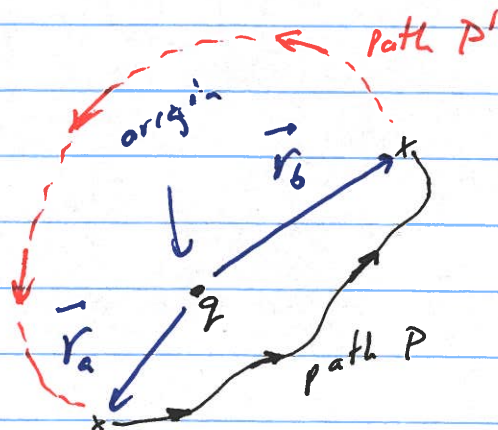 path P'
origin
r⃗b
q
r⃗a
path P